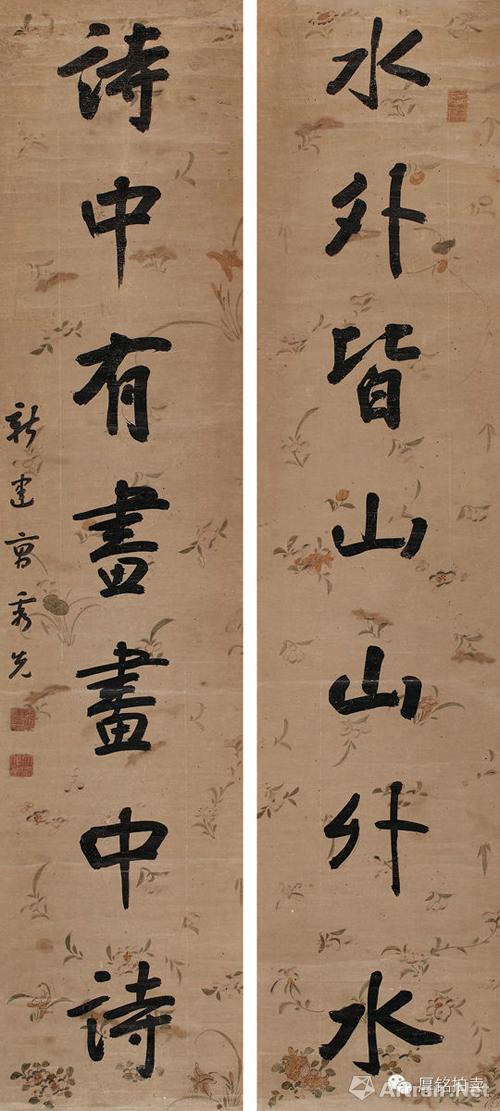 水外皆山山外水
詩中有畫畫中詩
新建曹秀先
厚铭拍卖
Artron.Net